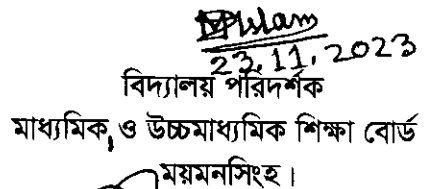 23.11.2023
বিদ্যালয় পরিদর্শক
মাধ্যমিক ও উচ্চমাধ্যমিক শিক্ষা বোর্ড
ময়মনসিংহ।